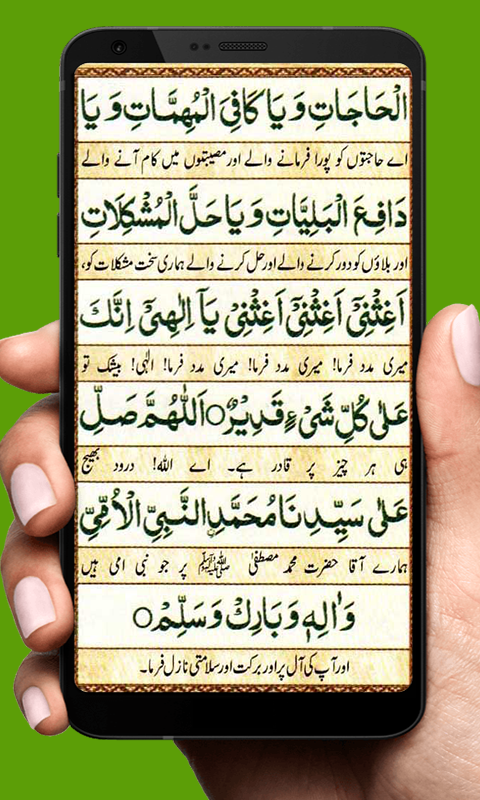 الْحَاجَاتِ وَ يَا كَافِيَ الْمُهِمَّاتِ وَ يَا
اے حاجتوں کو پورا فرمانے والے اور مصیبتوں میں کام آنے والے
دَافِعَ الْبَلِيَّاتِ وَ يَا حَلَّ الْمُشْكِلَاتِ
اور بلاؤں کو دور کرنے والے اور حل کرنے والے ہماری سخت مشکلات کو،
اَغِثْنِیْٓ اَغِثْنِیْٓ اَغِثْنِیْ يَآ اِلٰهِیْٓ اِنَّكَ
میری مدد فرما! میری مدد فرما! میری مدد فرما! الٰہی! بیشک تو
عَلٰی كُلِّ شَیْءٍ قَدِيْرٌ○ اَللّٰهُمَّ صَلِّ
ہی ہر چیز پر قادر ہے۔ اے اللہ! درود بھیج
عَلٰی سَيِّدِنَا مُحَمَّدِ ِۨالنَّبِیِّ الْاُمِّیِّ
ہمارے آقا حضرت محمد مصطفٰی ﷺ پر جو نبی امی ہیں
وَاٰلِهٖ وَ بَارِكْ وَ سَلِّمْ○
اور آپ کی آل پر اور برکت اور سلامتی نازل فرما۔